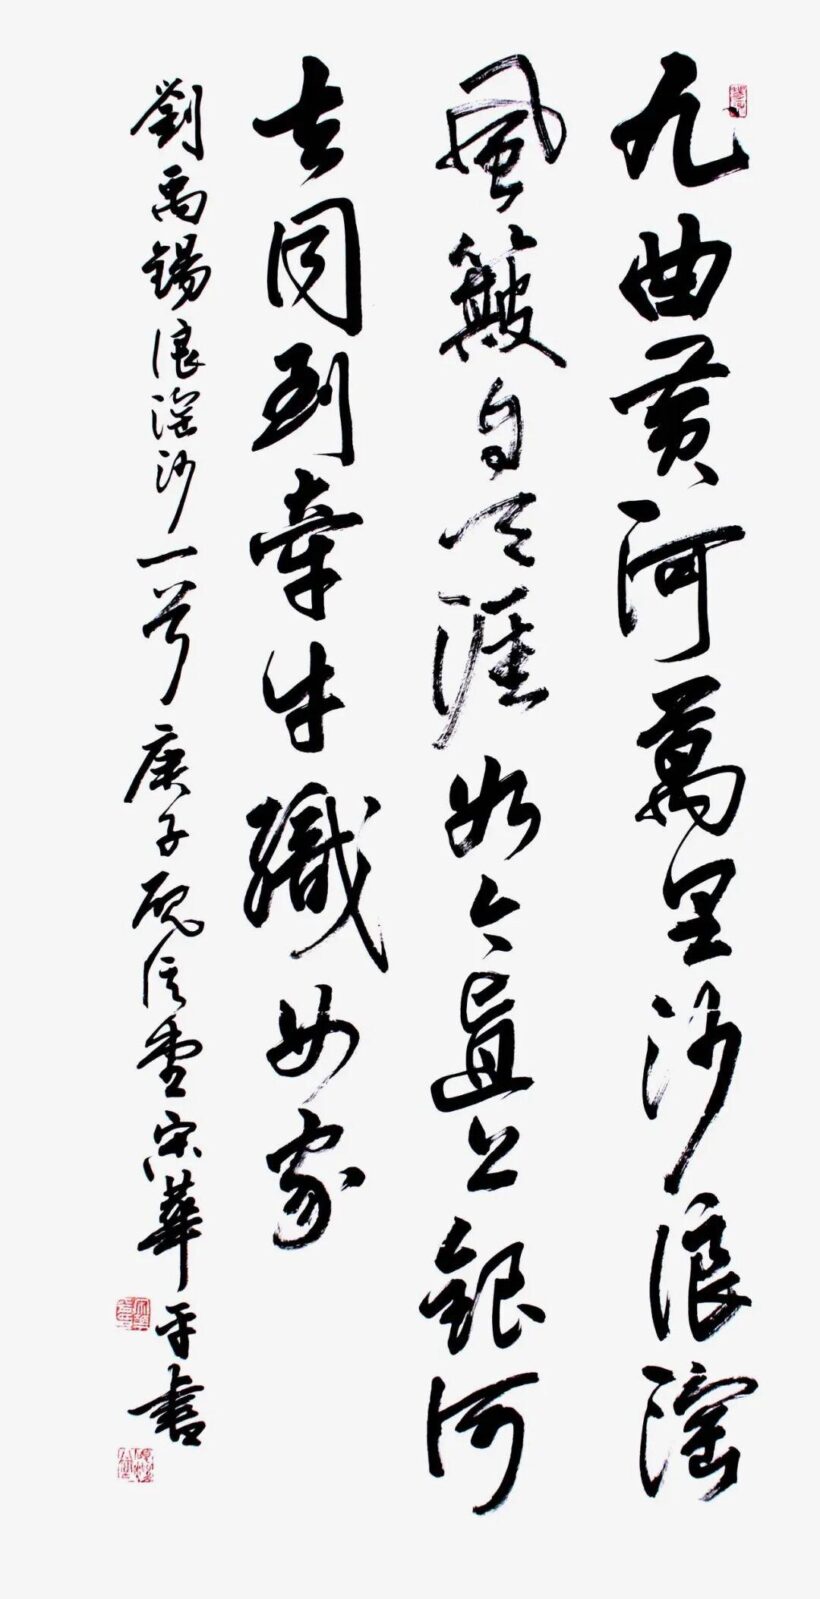 九曲黄河萬里沙浪淘
風簸自天涯如今直上銀河
去同到牽牛織女家
劉禹錫浪淘沙一首庚子硯堂宋華平書